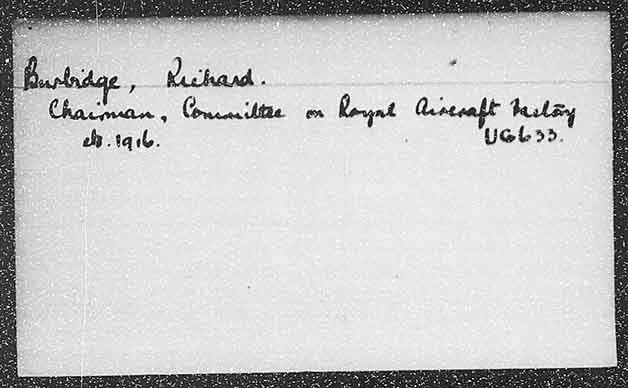 Burbidge, Richard.
Chairman, Committee on Royal Aircraft Factory
etc. 1916. UG633.